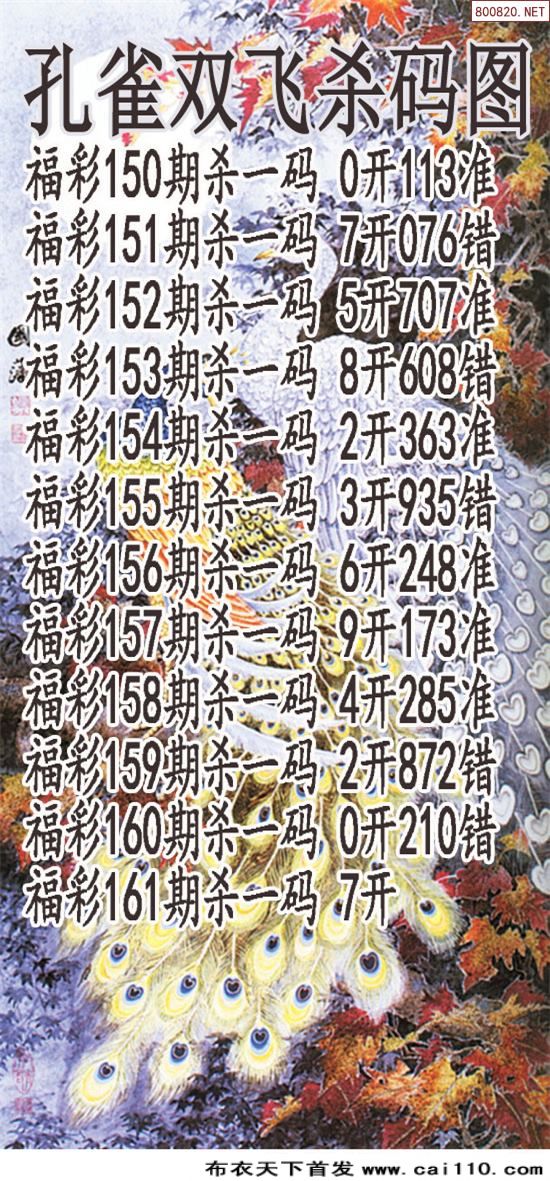 800820.NET
孔雀双飞杀码图
福彩150期杀一码 0开113准
福彩151期杀一码 7开076错
福彩152期杀一码 5开707准
福彩153期杀一码 8开608错
福彩154期杀一码 2开363准
福彩155期杀一码 3开935错
福彩156期杀一码 6开248准
福彩157期杀一码 9开173准
福彩158期杀一码 4开285准
福彩159期杀一码 2开872错
福彩160期杀一码 0开210错
福彩161期杀一码 7开
布衣天下首发 www.cai110.com